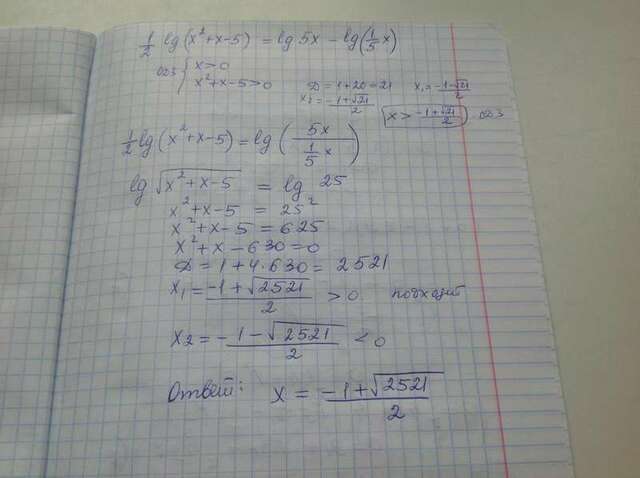 1/2 lg(x²+x-5) = lg 5x - lg(1/5 x)
ОДЗ { x>0
x²+x-5>0
D = 1+20=21 x₁ = (-1-√21)/2
x₂ = (-1+√21)/2
x > (-1+√21)/2 ОДЗ
1/2 lg(x²+x-5) = lg(5x / (1/5 x))
lg √(x²+x-5) = lg 25
x²+x-5 = 25²
x²+x-5 = 625
x²+x-630=0
D = 1+4·630 = 2521
x₁ = (-1+√2521)/2 > 0 подходит
x₂ = (-1-√2521)/2 < 0
Ответ: x = (-1+√2521)/2